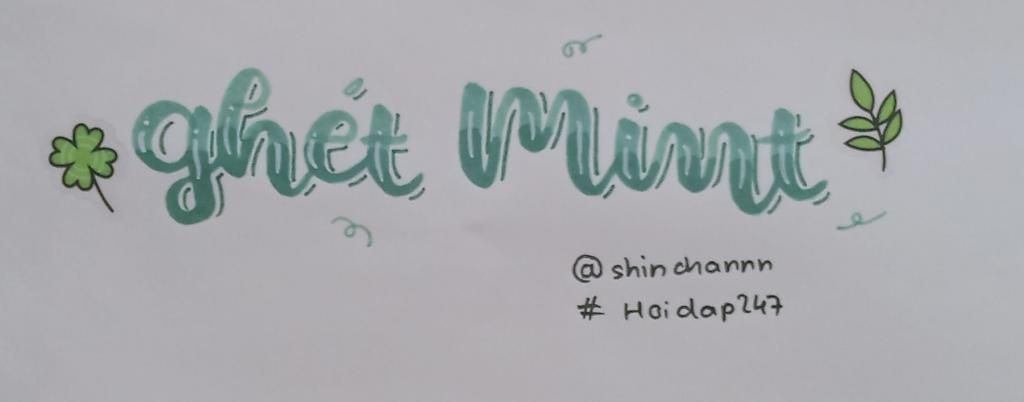 ghét Mint
@shinchannn
# Hoidap247